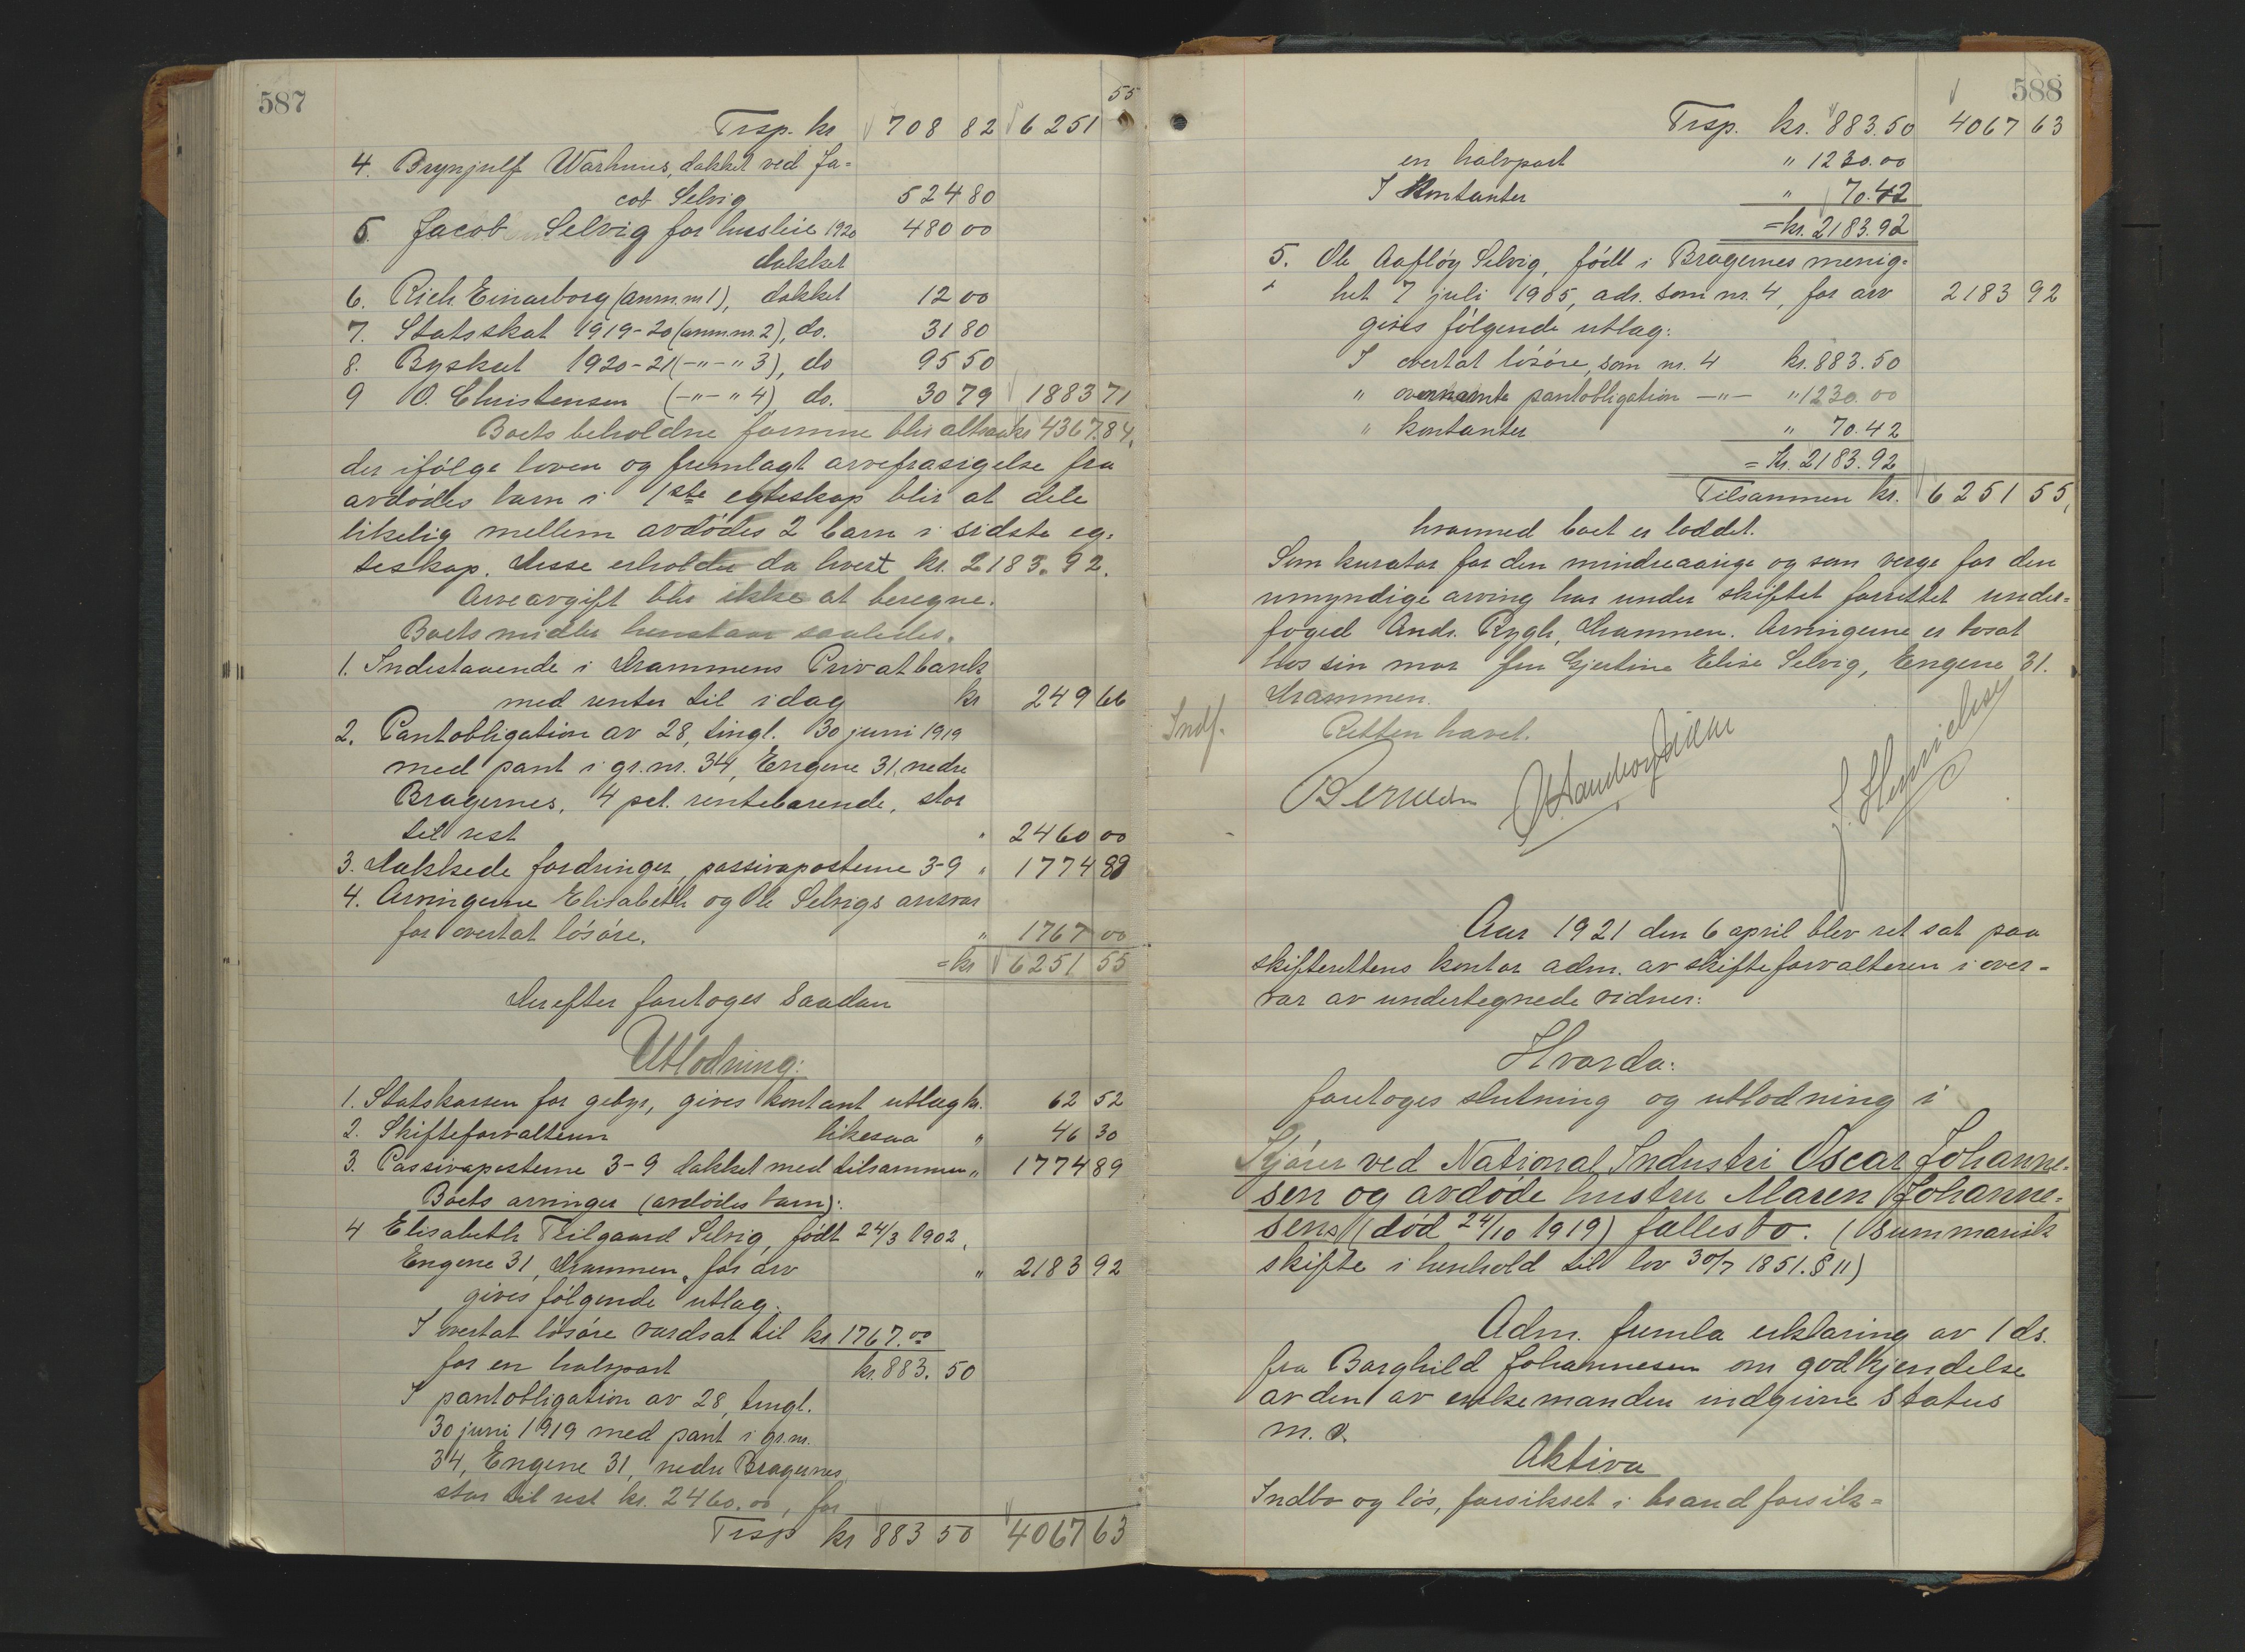 587
55
Trsp. kr 708 82 6251
4. Brynjulf Warhuus, dækket ved Ja=
cob Selvig 524 80
5. Jacob Selvig for husleie 1920 480 00
dækket
6. Rich. Einarborg (anm. nr 1), dækket 12 00
7. Statsskat 1919-20 (anm. nr. 2), do. 31 80
8. Byskat 1920-21 (-"- " 3), do 95 50
9 O. Christensen (-"- " 4) do. 30 79 1883 71
Boets beholdne formue blir altsaa kr 4367.84,
der ifølge loven og fremlagt arvefrasigelse fra
avdødes barn i 1ste egteskap blir at dele
likelig mellem avdødes 2 barn i sidste eg=
teskap. Disse erholder da hvert kr. 2183.92.
Arveavgift blir ikke at beregne.
Boets midler henstaar saaledes.
1. Indestaaende i Drammens Privatbank
med renter til idag kr 249 66
2. Pantobligation av 28, tingl. 30 juni 1919
med pant i gr. nr. 34, Engene 31, nedre
Bragernes, 4 pct. rentebærende, stor
til rest " 2460 00
3. Dækkede fordringer, passivaposterne 3-9 " 1774 89
4. Arvingerne Elisabeth og Ole Selvigs ansvar
for overtat løsøre. " 1767 00
= kr 6251 55
Derefter foretoges saadan
Utlodning:
1. Statskassen for gebyr, gives kontant utlæg kr. 62 52
2. Skifteforvalteren likesaa " 46 30
3. Passivaposterne 3-9 dækket med tilsammen " 1774 89
Boets arvinger (avdødes barn):
4 Elisabeth Teilgaard Selvig, født 24/3 1902,
Engene 31, Drammen, for arv " 2183 92
gives følgende utlæg:
I overtat løsøre værdsat til kr 1767.00
for en halvpart kr. 883.50
I pantobligation av 28, tingl.
30 juni 1919 med pant i gr. nr.
34, Engene 31, nedre Bragernes,
stor til rest kr. 2460.00, for
Trsp kr 883 50 4067 63
588
Trsp. kr. 883.50 4067 63
en halvpart " 1230.00
I kontanter " 70.42
= kr. 2183.92
5. Ole Aafløy Selvig, født i Bragernes menig=
het 7 juli 1905, adr. som nr. 4, for arv 2183 92
gives følgende utlæg:
I overtat løsøre, som nr. 4 kr. 883.50
" overnævnte pantobligation -"- " 1230.00
" kontanter " 70.42
= Kr. 2183.92
Tilsammen kr. 6251 55,
hvormed boet er loddet.
Som kurator for den mindreaarige og som verge for den
umyndige arving har under skiftet forrettet under=
foged Andr. Rygh, Drammen. Arvingerne er bosat
hos sin mor fru Gjertine Elise Selvig, Engene 31.
Drammen.
Indf.
Retten hævet.
Aar 1921 den 6 april blev ret sat paa
skifterettens kontor adm. av skifteforvalteren i over=
vær av undertegnede vidner:
Hvorda:
foretoges slutning og utlodning i
Kjører ved National Industri Oscar Johanne=
sen og avdøde hustru Maren Johanne=
sens (død 24/10 1919) fællesbo. (Summarisk
skifte i henhold til lov 30/7 1851. § 11)
Adm. fremla erklæring av 1 ds.
fra Borghild Johannesen om godkjendelse
av den av enkemanden indgivne status
m. v.
Aktiva
Indbo og løs, forsikret i brandforsik=